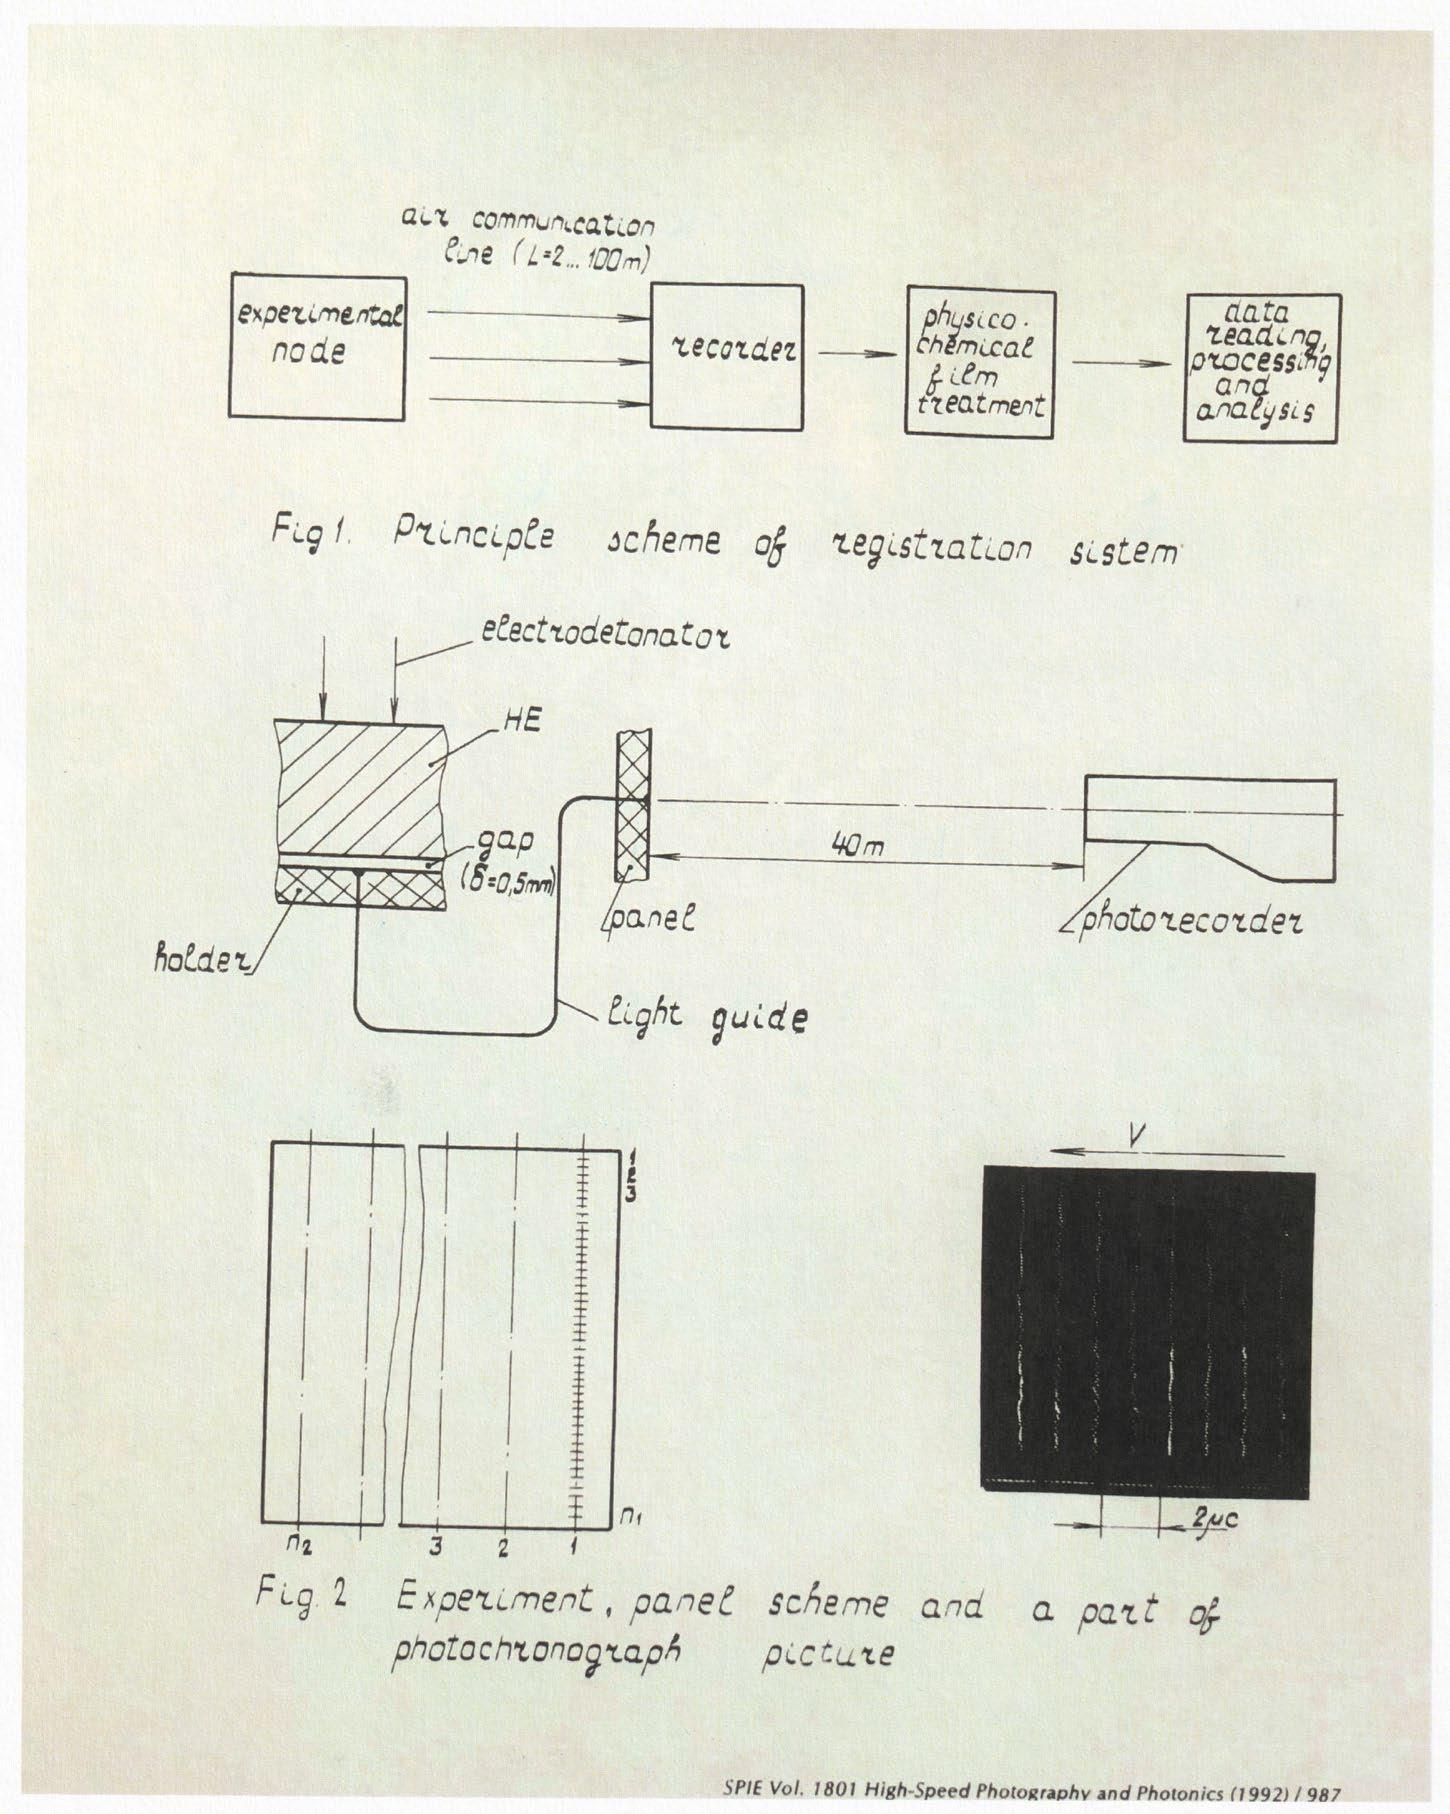 air communication
line (L=2...100m)
experimental
node
recorder
physico-
chemical
film
treatment
data
reading,
processing
and
analysis
Fig 1. Principle scheme of registration sistem
electrodetonator
HE
gap
(δ=0,5mm)
40m
panel
photorecorder
holder
light guide
V
1
2
3
n1
n2 3 2 1
2μc
Fig. 2 Experiment, panel scheme and a part of
photochronograph picture
SPIE Vol. 1801 High-Speed Photography and Photonics (1992) / 987